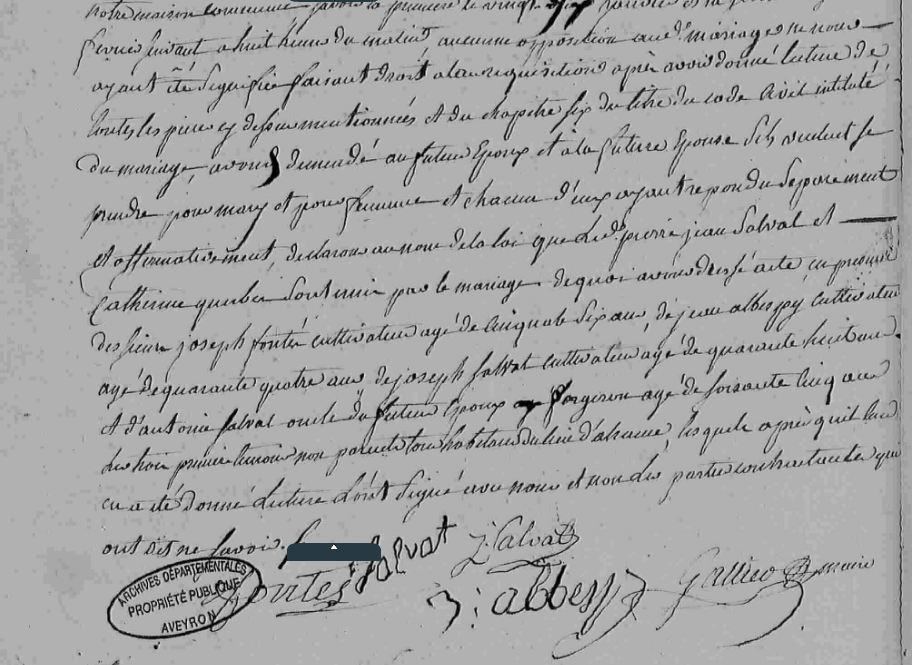 notre maison commune, savoir la première le vingt sept
fevrier suivant a huit heures du matin, aucune opposition aud. mariage ne nous
ayant été signifiée faisant droit a leur requisition après avoir donné lecture de
toutes les pieces cy dessus mentionnées et du chapitre six du titre du code civil intitulé
du mariage, avons demandé au futeur Epoux et à la future Epouse s'ils veulent se
prendre pour mary et pour femme et chacun d'eux ayant repondu séparement
et affirmativement, declarons au nom de la loi que led. pierre jean Salvat et
Catherine sont unis par le mariage. de quoi avons dressé acte en presence
des sieurs joseph fontés cultivateur agé de cinquante six ans, de jean albespy cultivateur
agé de quarante quatre ans, de joseph salvat cultivateur agé de quarante huit ans.
et d'antoine salvat oncle du futeur Epoux forgeron agé de soixante cinq ans
les trois premiers temoins non parents tous habitans du lieu, lesquels après qu'il leur
en a été donné lecture l'ont signé avec nous et non les parties contractantes qui
ont dit ne savoir.
fontes Salvat J. Salvat
J: albespy maire
ARCHIVES DÉPARTEMENTALES
PROPRIÉTÉ PUBLIQUE
AVEYRON